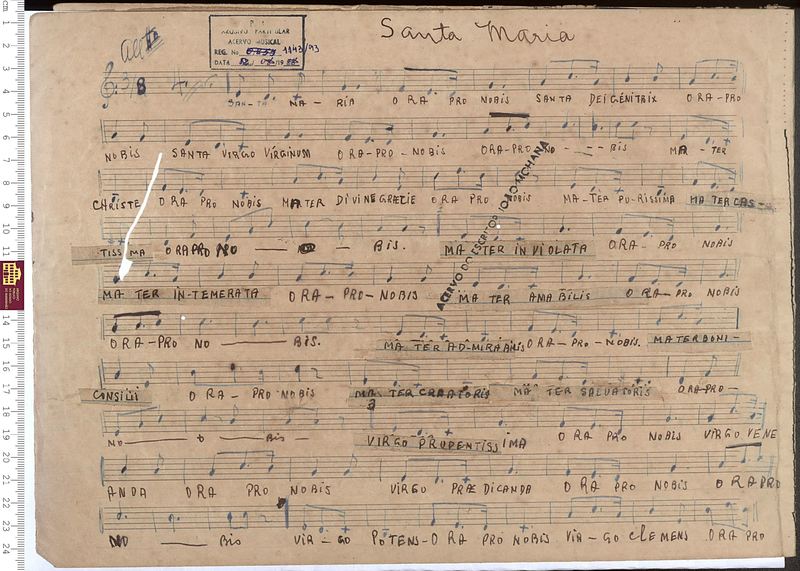 Santa Maria
ARQUIVO PARTICULAR
ACERVO MUSICAL
REG. No 1143/93
DATA
3/8
SAN-TA MA-RIA ORA PRO NOBIS SANTA DEI GENITRIX ORA-PRO
NOBIS SANTA VIRGO VIRGINUM ORA-PRO-NOBIS ORA-PRO NO - - - BIS MA-TER
CHRISTE ORA PRO NOBIS MATER DIVINE GRÆTIE ORA PRO NOBIS MA-TER PU-RISSIMA MATER CAS-
TISSIMA ORA PRO NO — — BIS. MATER INVIOLATA ORA- PRO NOBIS
MATER IN-TEMERATA ORA-PRO-NOBIS MATER AMABILIS ORA-PRO NOBIS
ORA-PRO NO — BIS. MATER AD-MIRABILIS ORA-PRO-NOBIS. MATER BONI-
CONSILII ORA-PRO NOBIS MATER CREATORIS MATER SALVATORIS ORA PRO-
NO — O — BIS — VIRGO PRUDENTISSIMA ORA PRO NOBIS VIRGO VENE
ANDA ORA PRO NOBIS VIRGO PRÆDICANDA ORA PRO NOBIS ORA PRO
NO — BIS VIR-GO POTENS-ORA PRO NOBIS VIR-GO CLEMENS ORA PRO
ACERVO DO ESCRITOR JOÃO MOHANA
cm 1 2 3 4 5 6 7 8 9 10 11 14 15 16 17 18 19 20 21 22 23 24